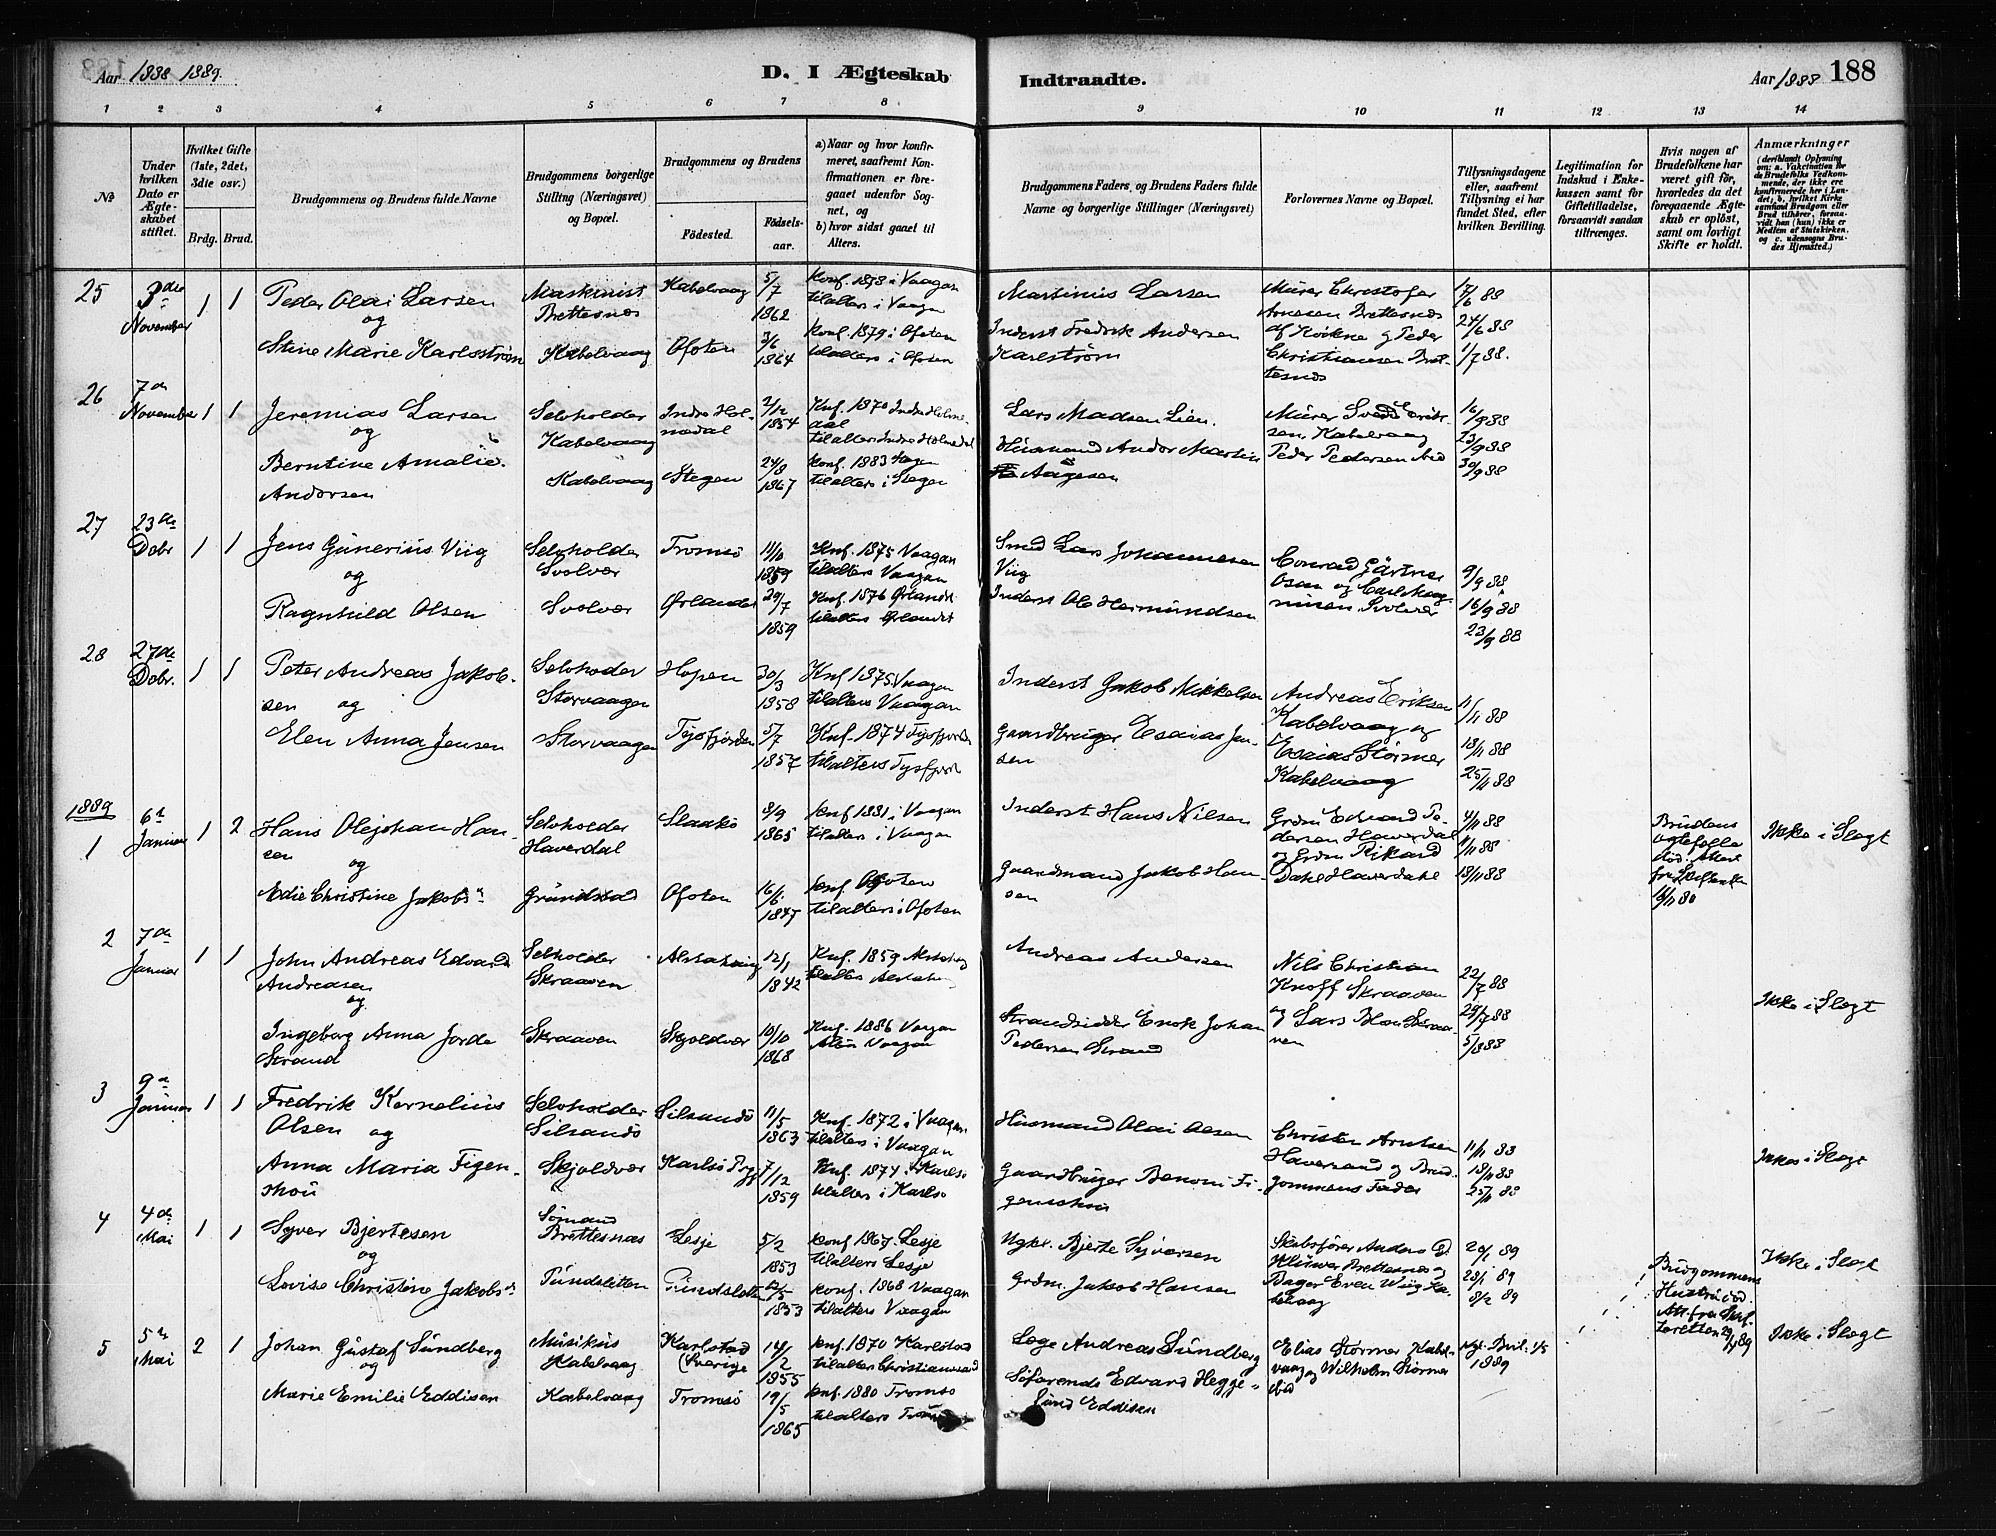 Aar 1888 1889.
D. I Ægteskab Indtraadte.
Aar 1888 188
1 2 3 4 5 6 7 8 9 10 11 12 13 14
№
Under hvilken Dato er Ægteskabet stiftet.
Hvilket Gifte (1ste, 2det, 3die osv.)
Brdg. Brud.
Brudgommens og Brudens fulde Navne
Brudgommens borgerlige Stilling (Næringsvei) og Bopæl.
Brudgommens og Brudens
Födested. Födselsaar.
a) Naar og hvor konfirmeret, saafremt Konfirmationen er foregaaet udenfor Sognet, og
b) hvor sidst gaaet til Alters.
Brudgommens Faders, og Brudens Faders fulde Navne og borgerlige Stillinger (Næringsvei)
Forlovernes Navne og Bopæl.
Tillysningsdagene eller, saafremt Tillysning ei har fundet Sted, efter hvilken Bevilling.
Legitimation for Indskud i Enkekassen samt for Giftetilladelse, forsaavidt saadan tiltrænges.
Hvis nogen af Brudefolkene har været gift för, hvorledes da det foregaaende Ægteskab er oplöst, samt om lovligt Skifte er holdt.
Anmærkninger
(deriblandt Oplysning om: a. Vakcination for de Brudefolks Vedkommende, der ikke ere konfirmerede her i Landet; b. hvilket Kirkesamfund Brudgom eller Brud tilhører, forsaavidt han (hun) ikke er Medlem af Statskirken. og c. udensogns Brudes Hjemsted.)
25 3die November 1 1
Peder Olai Larsen
og
Stine Marie Karlsstrøm
Maskinist Brettesnes
Kabelvaag
Kabelvaag
Ofoten
5/7 1862
3/6 1864
Konf. 1878 i Vaagan
tilalters i Vaag
Konf. 1879 i Ofoten
tilalters i Ofoten
Martinus Larsen
Inderst Fredrik Andersen
Karlstrøm
Murer Christofer
Arnesen Brettesnes
Christiansen Bret-
tesnes
17/6 88
24/6 88
1/7 88.
26 7de November 1 1
Jeremias Larsen
og
Berntine Amalie
Andorsen
Selvholder
Kabelvaag
Kabelvaag
Indre Hol-
medal
Stegen
2/12 1854
24/8 1867
Knf. 1870 Indre Holme
dal
tilalters Indre Holmedal
Konf. 1883 Stegen
tilalters i Stegen
Lars Madsen Lien.
Husmand Andor Martin
Aagesen
Murer Svend Erik-
sen Kabelvaag
Peder Pedersen ibid
16/9 88
23/9 88
30/9 88
27 23de Dcbr 1 1
Jens Gunerius Viig
og
Ragnhild Olsen
Selvholder
Svolvær
Svolvær
Tromsø
Ørlandet
11/10 1859
29/7 1859
Knf. 1875 Vaagan
tilalters Vaagan
Knf. 1876 Ørlandet
tilalters Ørlandet
Smed Lars Johannesen
Viig
Inderst Ole Hermundsen
Conrad Gärtner
Osan og Carl Mag-
nusen Svolvær
9/9 88
16/9 88
23/9 88
28 27de Dcbr. 1 1
Peter Andreas Jakob-
sen og
Elen Anna Jensen
Selvholder
Storvaagen
Storvaagen
Hopen
Tysfjorden
30/3 1858
5/7 1857
Knf 1875 Vaagan
tilalters Vaagan
Knf. 1874 Tysfjorden
tilalters Tysfjord
Inderst Jakob Mikkelsen
Gaardbruger Esaias Jen-
sen
Andreas Eriksen
Kabelvaag og
Esaias Størmer
Kabelvaag
11/11 88
18/11 88
25/11 88
1889
1 6te Januar 1 2
Hans Olejohan Han-
sen og
Edie Christine Jakobsn
Selvholder
Haverdal
Grundstad
Slaakø
Ofoten
8/9 1865
16/6 1847
Konf 1881 i Vaagan
tilalters i Vaagan
Konf Ofoten
tilalters i Ofoten
Inderst Hans Nilsen
Gaardmand Jakob Han-
sen
Grdm Edvard Pe-
dersen Haverdal
og Grdm Rikard
Dahl Haverdahl
4/11 88
11/11 88
18/11 88
Brudens
ægtefælle
død. Attest
fra Skifteretten
Ikke i Slægt
2 7de Januar 1 1
John Andreas Edvard
Andreasen
og
Ingeborg Anna Jorde
Strand
Selvholder
Skraaven
Skraaven
Alstahaug
Skjoldvær
12/1 1842
10/10 1868
Knf. 1859 Alstahaug
tilalters Alstahaug
Knf. 1886 Vaagan
Alters Vaagan
Andreas Andersen
Strandsidder Enok Johan
Pedersen Strand
Nils Christian
Knoff Skraaven
og Lars Skraa-
ven
22/7 88
29/7 88
5/8 88
Ikke i Slægt
3 9de Januar 1 1
Fredrik Kornelius
Olsen og
Anna Maria Figen-
skou
Selvholder
Silsandø
Skjoldvær
Silsandø
Karlsø Præg
11/5 1863
7/12 1859
Knf. 1872 i Vaagan
tilalters i Vaagan
Knf. 1874 i Karlsø
tilalters i Karlsø
Husmand Olai Olsen
Gaardbruger Benoni Fi-
genschou
Christen Arntsen
Haversand og Brud-
gommens Fader
11/11 88
18/11 88
25/11 88
Ikke i Slægt
4 4de Mai 1 1
Syver Bjertesen
og
Lovise Christine Jakobsdr
Sømand
Brettesnæs
Tundsletten
Lesje
Tundsletten
5/2 1853
12/5 1853
Konf 1867 Lesje
tilalters Lesje
Konf. 1868 Vaagan
tilalters Vaagan
Ugkr. Bjerte Syversen
Grdm. Jakob Hansen
Skibsfører Anders
Klüwer Brettesnes og
Bager Even Wiig Ka-
belvaag
20/1 89
28/1 89
8/2 89
Ikke i Slægt
5 5te Mai 2 1
Johan Gustaf Sundberg
og
Marie Emilie Eddisen
Musikus
Kabelvaag
Kabelvaag
Karlstad
(Sverige
Tromsø
14/2 1855
19/5 1865
Knf 1870 Karlstad
tilalters Christiansund
Knf. 1880 Tromsø
tilalters Tromsø
Loge Andreas Sundberg
Søfarende Edvard Hegge-
lund Eddisen
Elias Størmer Kabel-
vaag og Wilhelm Størmer
ibid
Kgl. Bvil. 1/5
1889
Brudgommens
Hustru død.
Att. fra Skif-
teretten 29/4 89
Ikke i Slægt